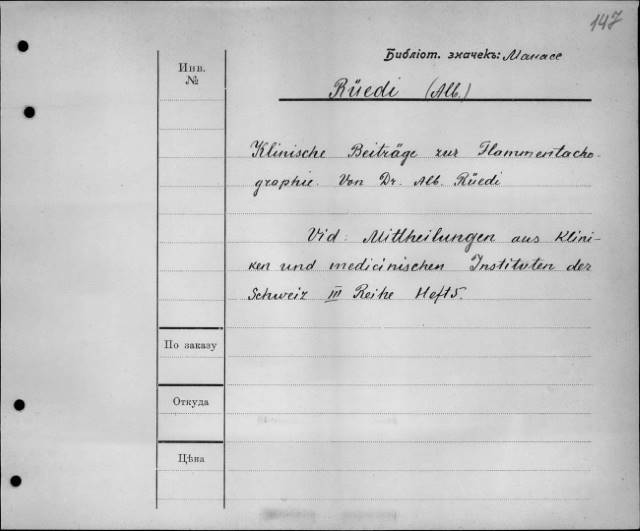 147
Библіот. значекъ: Манасе
Инв.
№
Rüedi (Alb.)
Klinische Beiträge zur Flammentacho-
graphie. Von Dr. Alb. Rüedi
Vid: Mittheilungen aus Klini-
ken und medicinischen Instituten der
Schweiz III Reihe Heft 5.
По заказу
Откуда
Цѣна